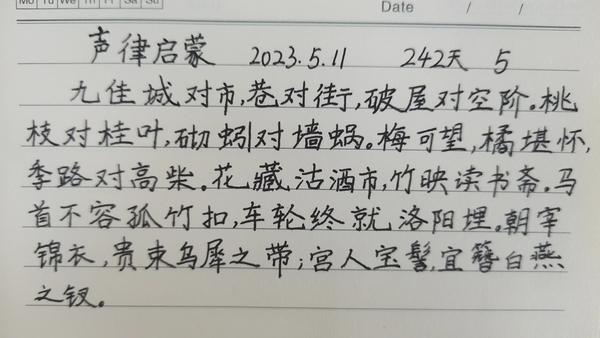 Mo Tu We Th Fr Sa Su
Date / /
声律启蒙 2023.5.11 242天 5
九佳 城对市,巷对街,破屋对空阶。桃
枝对桂叶,砌蚓对墙蜗。梅可望,橘堪怀,
季路对高柴。花藏沽酒市,竹映读书斋。马
首不容孤竹扣,车轮终就洛阳埋。朝宰
锦衣,贵束乌犀之带;宫人宝髻,宜簪白燕
之钗。